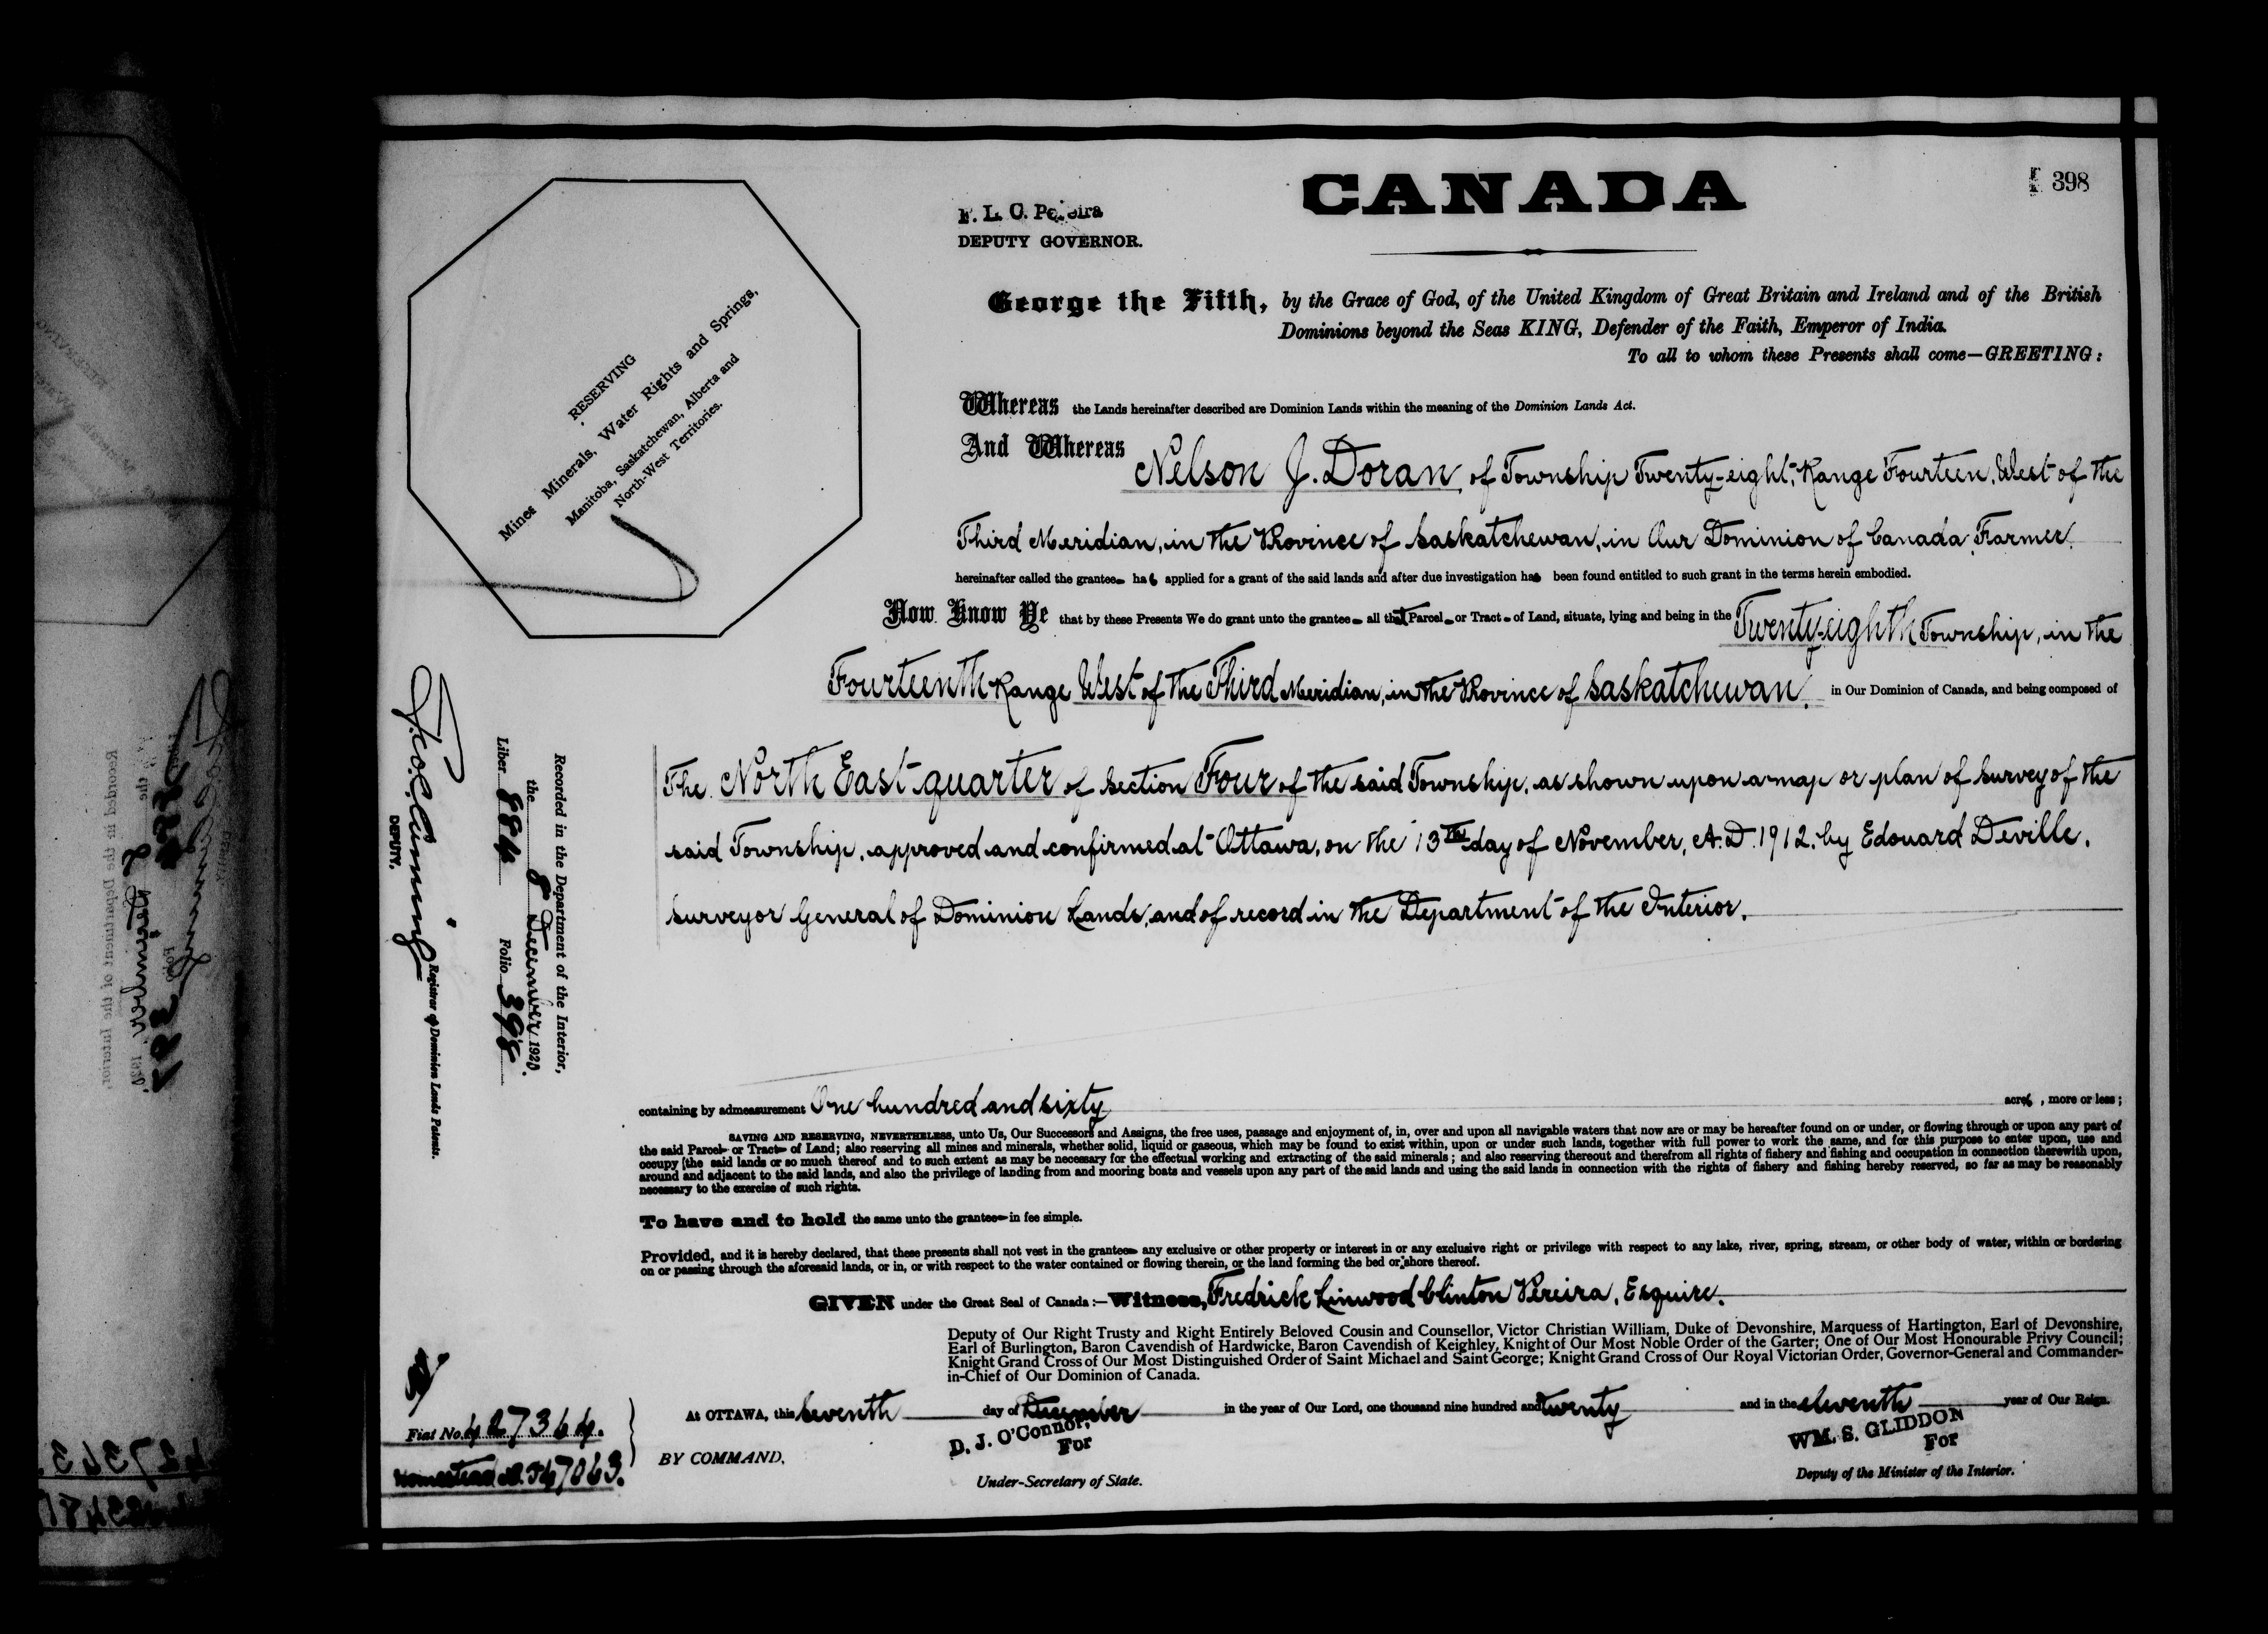 398
CANADA
F. L. C. Pereira
DEPUTY GOVERNOR.
George the Fifth, by the Grace of God, of the United Kingdom of Great Britain and Ireland and of the British
Dominions beyond the Seas KING, Defender of the Faith, Emperor of India.
To all to whom these Presents shall come—GREETING:
RESERVING
Mines Minerals, Water Rights and Springs,
Manitoba, Saskatchewan, Alberta and
North-West Territories.
Whereas the Lands hereinafter described are Dominion Lands within the meaning of the Dominion Lands Act.
And Whereas Nelson J. Doran, of Township Twenty-eight, Range Fourteen, West of the
Third Meridian, in the Province of Saskatchewan, in Our Dominion of Canada, Farmer.
hereinafter called the grantee has applied for a grant of the said lands and after due investigation has been found entitled to such grant in the terms herein embodied.
Now Know Ye that by these Presents We do grant unto the grantee all that Parcel or Tract of Land, situate, lying and being in the Twenty-eighth Township, in the
Fourteenth Range West of the Third Meridian, in the Province of Saskatchewan, in Our Dominion of Canada, and being composed of
The North East quarter of Section Four of the said Township, as shown upon a map or plan of survey of the
said Township, approved and confirmed at Ottawa, on the 13th day of November, A.D. 1912, by Edouard Deville,
Surveyor General of Dominion Lands, and of record in the Department of the Interior.
Recorded in the Department of the Interior,
the 8 December 1920.
Liber 884 Folio 398
DEPUTY. Registrar of Dominion Lands Patents.
containing by admeasurement One hundred and sixty acres, more or less;
SAVING AND RESERVING, NEVERTHELESS, unto Us, Our Successors and Assigns, the free uses, passage and enjoyment of, in, over and upon all navigable waters that now are or may be hereafter found on or under, or flowing through or upon any part of
the said Parcel or Tract of Land; also reserving all mines and minerals, whether solid, liquid or gaseous, which may be found to exist within, upon or under such lands, together with full power to work the same, and for this purpose to enter upon, use and
occupy the said lands or so much thereof and to such extent as may be necessary for the effectual working and extracting of the said minerals; and also reserving thereout and therefrom all rights of fishery and fishing and occupation in connection therewith upon,
around and adjacent to the said lands, and also the privilege of landing from and mooring boats and vessels upon any part of the said lands and using the said lands in connection with the rights of fishery and fishing hereby reserved, so far as may be reasonably
necessary to the exercise of such rights.
To have and to hold the same unto the grantee in fee simple.
Provided, and it is hereby declared, that these presents shall not vest in the grantee any exclusive or other property or interest in or any exclusive right or privilege with respect to any lake, river, spring, stream, or other body of water, within or bordering
on or passing through the aforesaid lands, or in, or with respect to the water contained or flowing therein, or the land forming the bed or shore thereof.
GIVEN under the Great Seal of Canada:—Witness, Fredrick Linwood Clinton Pereira, Esquire.
Deputy of Our Right Trusty and Right Entirely Beloved Cousin and Counsellor, Victor Christian William, Duke of Devonshire, Marquess of Hartington, Earl of Devonshire,
Earl of Burlington, Baron Cavendish of Hardwicke, Baron Cavendish of Keighley, Knight of Our Most Noble Order of the Garter; One of Our Most Honourable Privy Council;
Knight Grand Cross of Our Most Distinguished Order of Saint Michael and Saint George; Knight Grand Cross of Our Royal Victorian Order, Governor-General and Commander-
in-Chief of Our Dominion of Canada.
At OTTAWA, this seventh day of December in the year of Our Lord, one thousand nine hundred and twenty and in the eleventh year of Our Reign.
Fiat No. 427364.
Homestead
BY COMMAND,
D. J. O'Connor,
For
Under-Secretary of State.
WM. S. GLIDDON
For
Deputy of the Minister of the Interior.